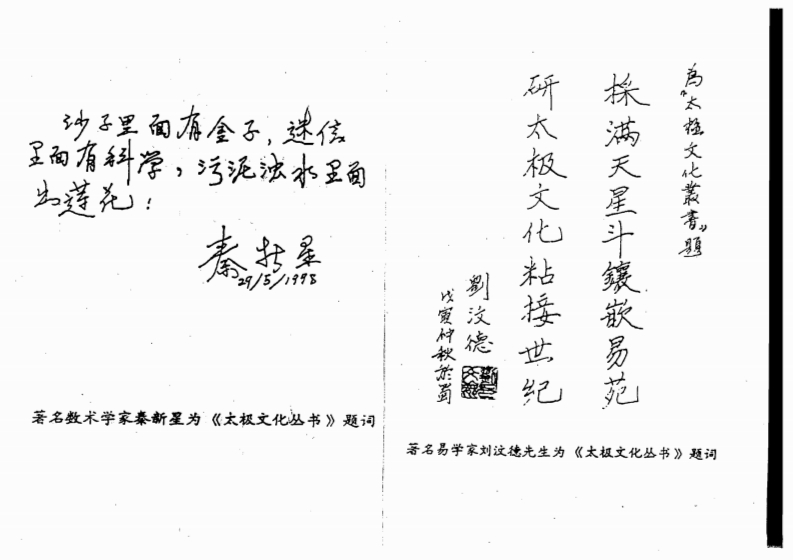 沙子里面有金子，迷信
里面有科学，污泥浊水里面
出莲花！
秦新星
29/5/1998
著名数术学家秦新星为《太极文化丛书》题词
为“太极文化叢書”題
採滿天星斗鑲嵌易苑
研太极文化粘接世纪
劉汶德
戊寅仲秋於蜀
著名易学家刘汶德先生为《太极文化丛书》题词